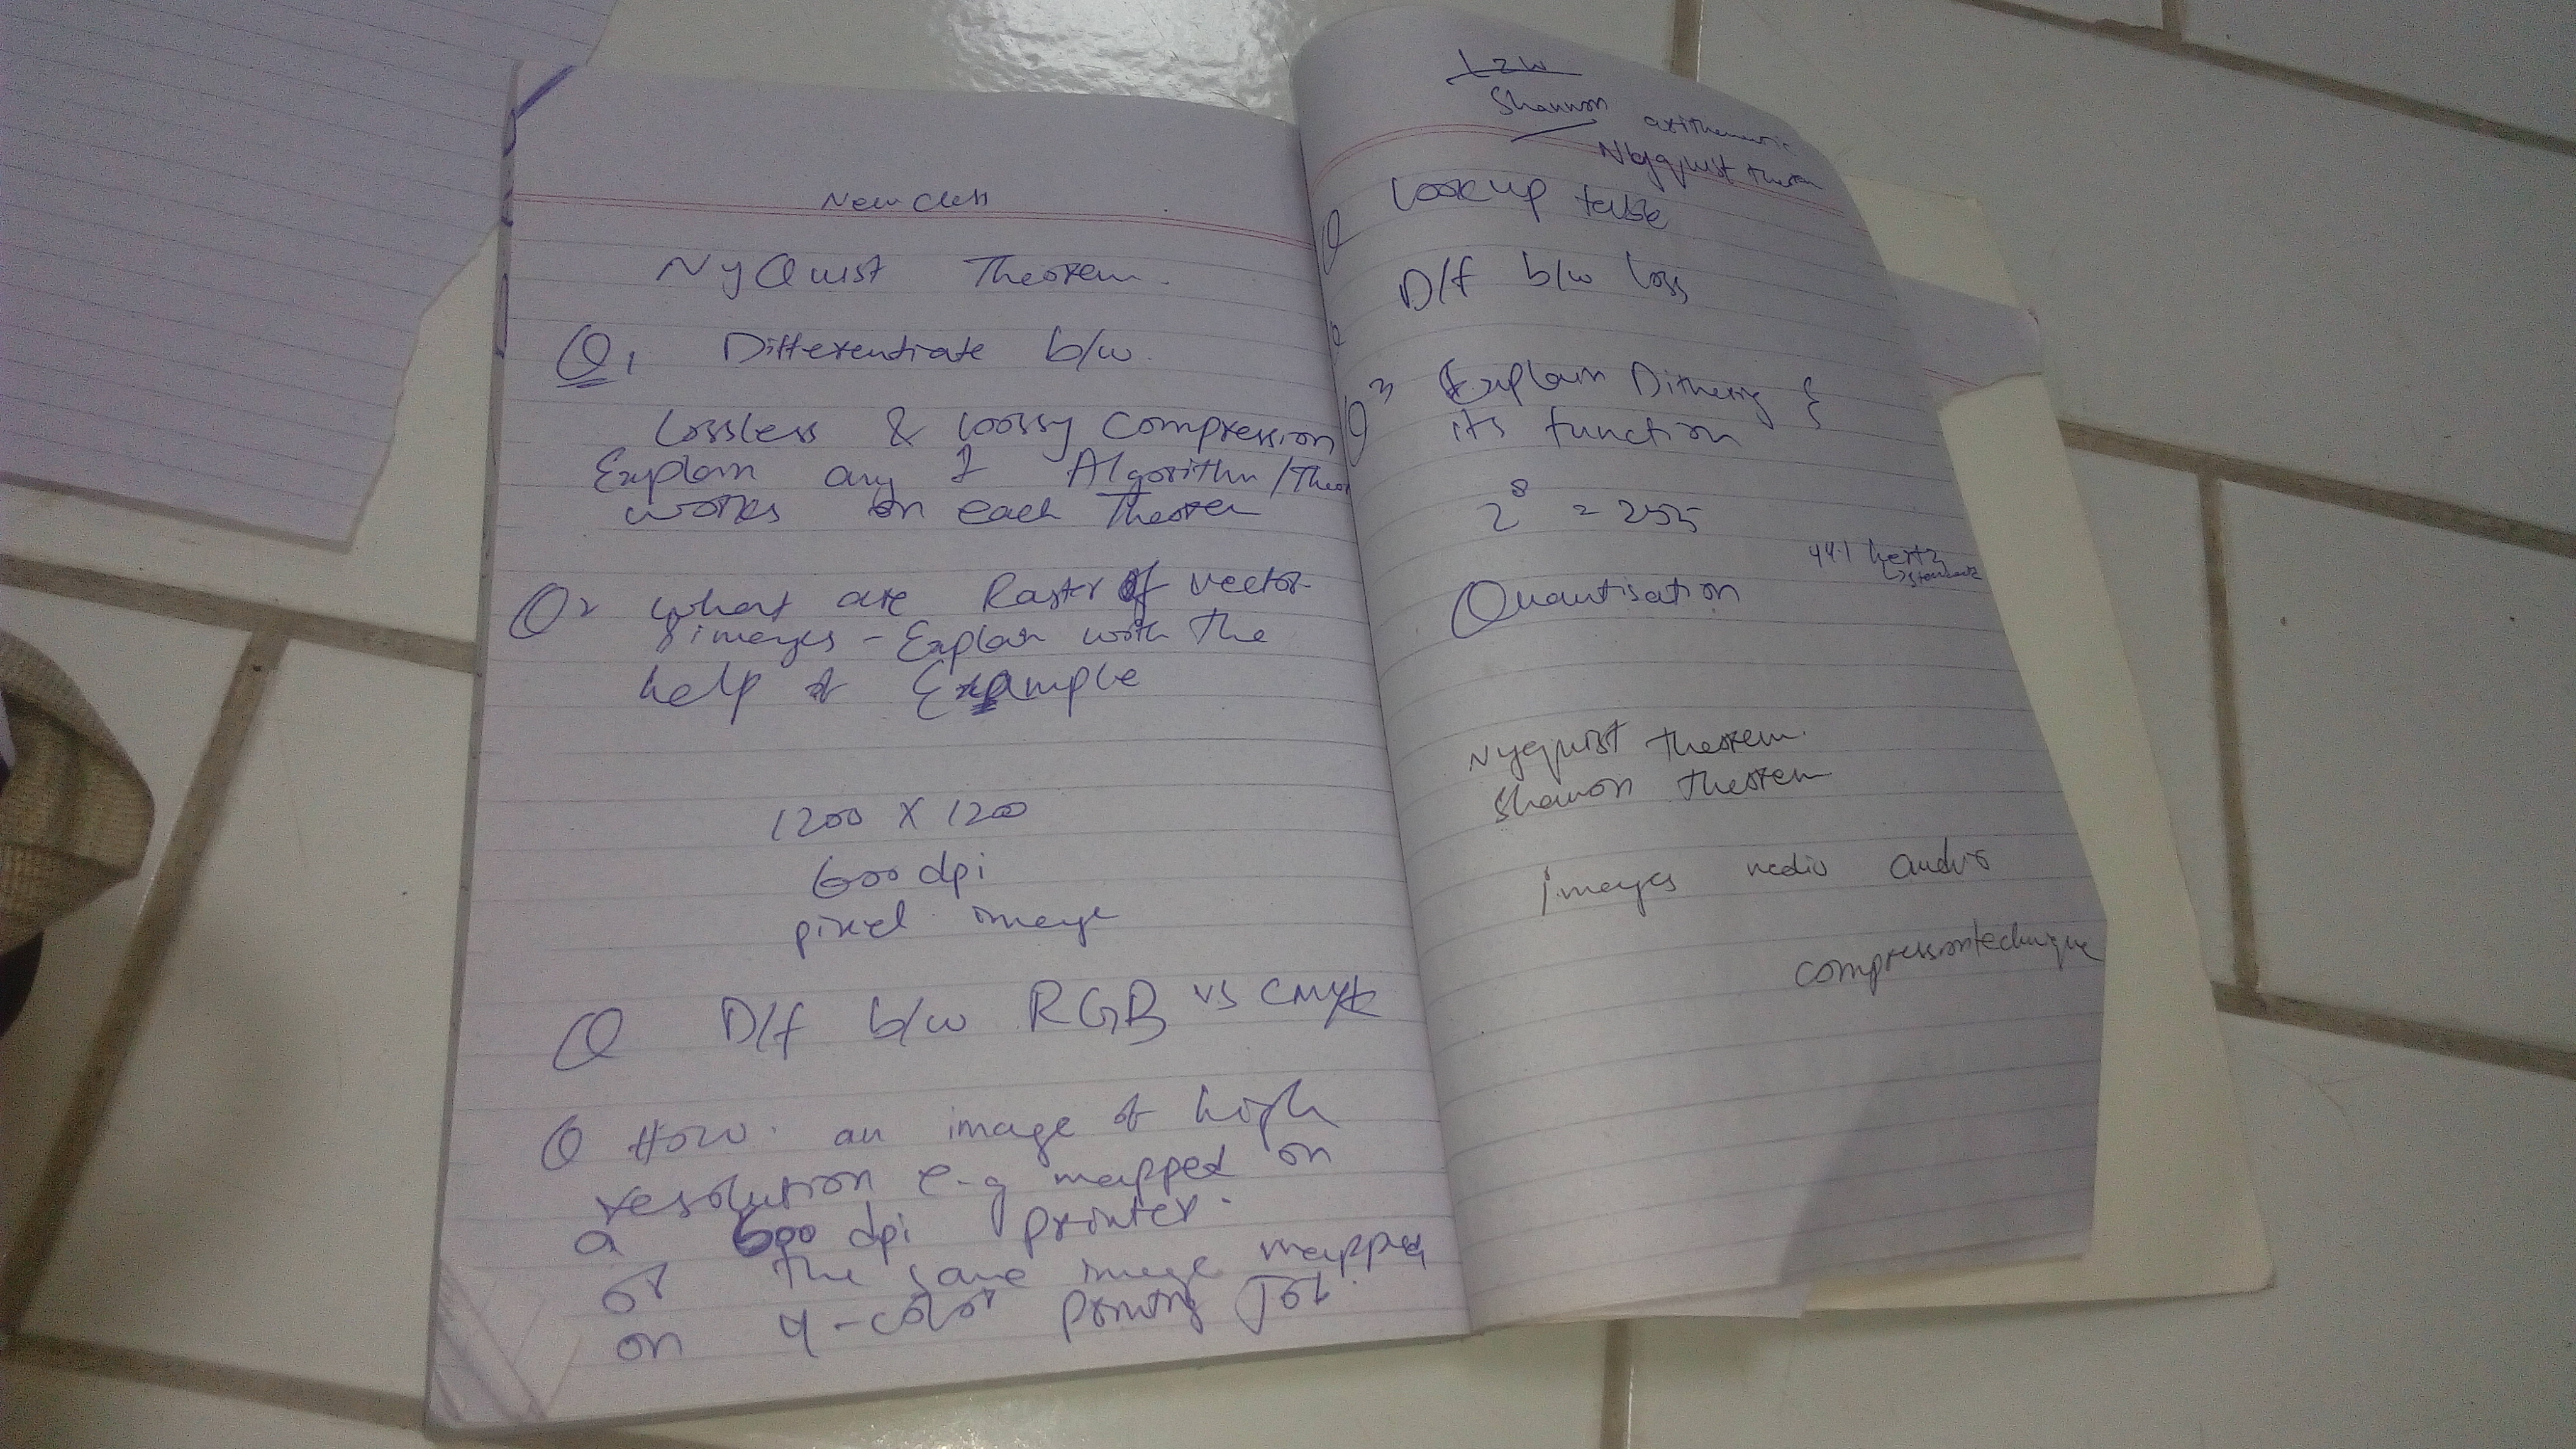 New class
NyQuist Theorem.
Q1 Differentiate b/w.
Lossless & loossy Compression
Explain any 1 Algorithm/Theo
works on each Theorem
Q2 what are Raster & vector
images - Explain with the
help of Example
1200 X 1200
600 dpi
pixel image
Q D/f b/w RGB vs CMYK
Q How an image of high
resolution e.g mapped on
a 600 dpi printer.
or the same image mapped
on 4-color printing Job.
LZW
Shannon
arithemetic
Nyquist theorem
Q Lookup table
D/f b/w loss
Q3 Explain Dithering &
its function
2^8 = 255
44.1 hertz
↳ standard
Quantisation
Nyequist theorem.
Shanon theorem
images vedio audio
compression technique